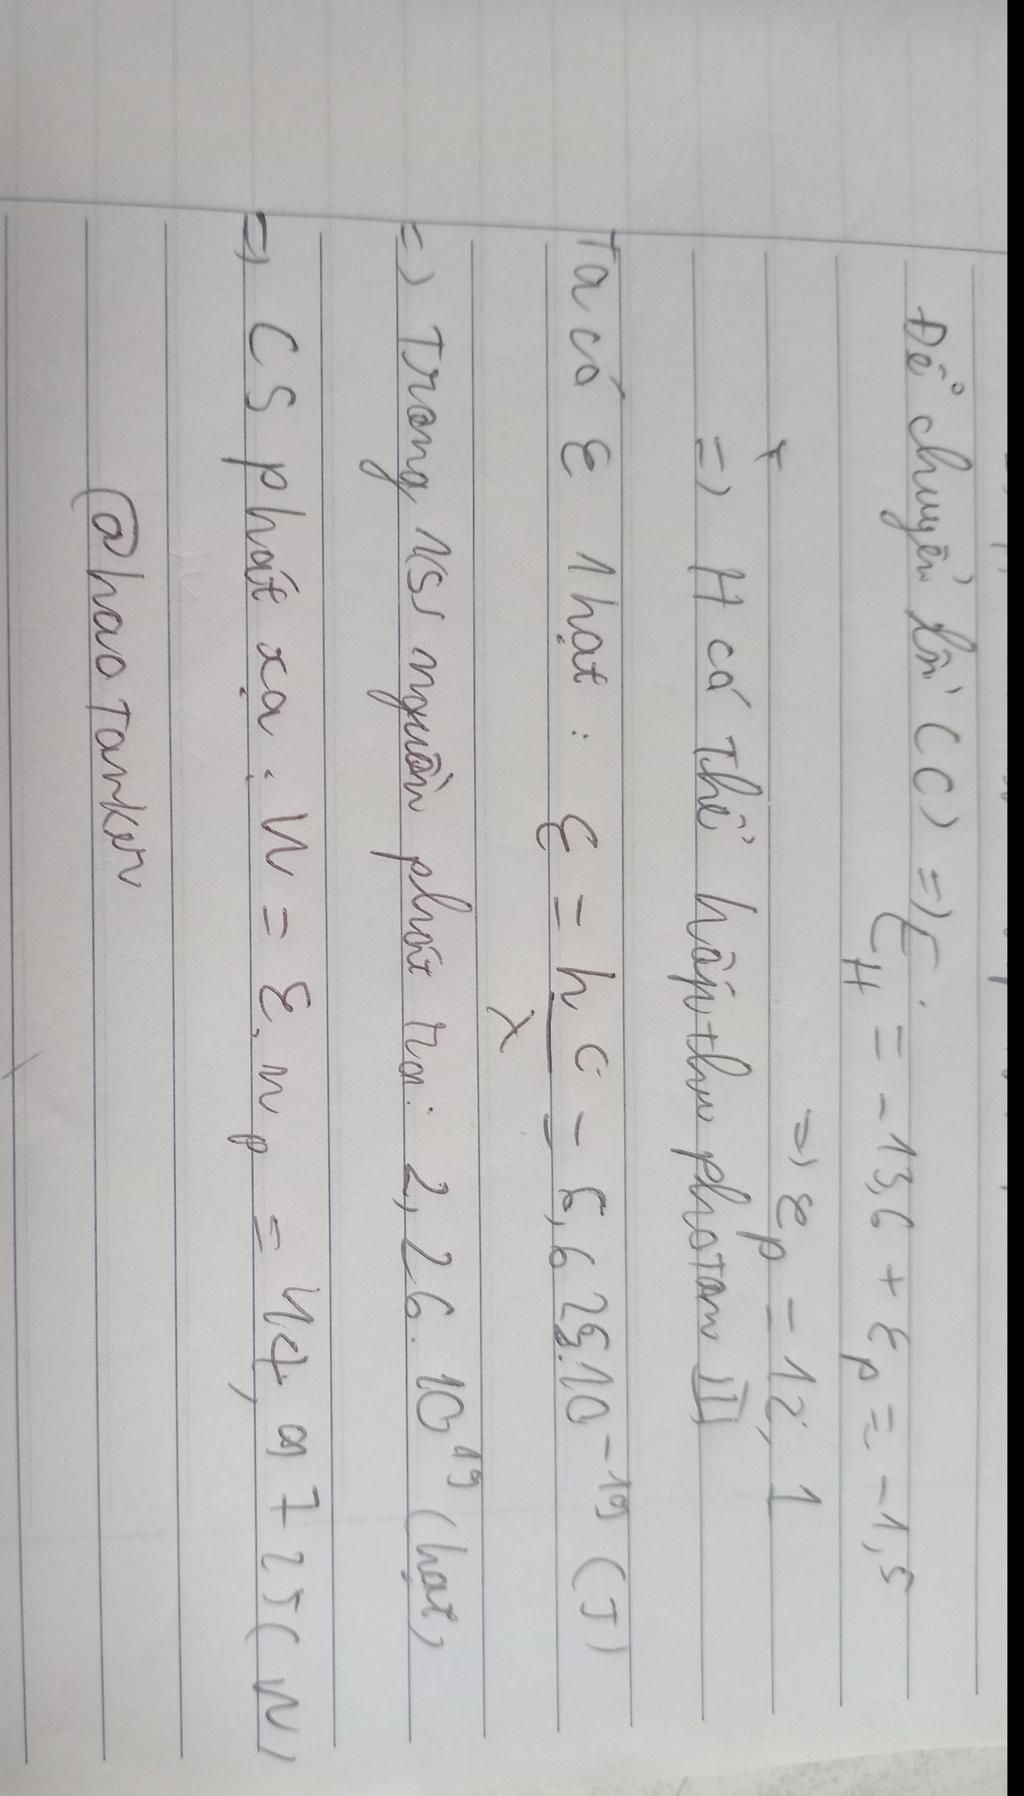 Để chuyển lên (C) => E_H = -13,6 + ε_p = -1,5
=> ε_p = 12,1
=> H có thể hấp thu photon III
Ta có ε 1 hạt : ε = hc/λ = 6,625.10^-19 (J)
=> Trong 1s, nguồn phát ra: 2,26.10^19 (hạt)
=> CS phát xạ. W = ε.n_p = 14,9725 (W)
@haotanker